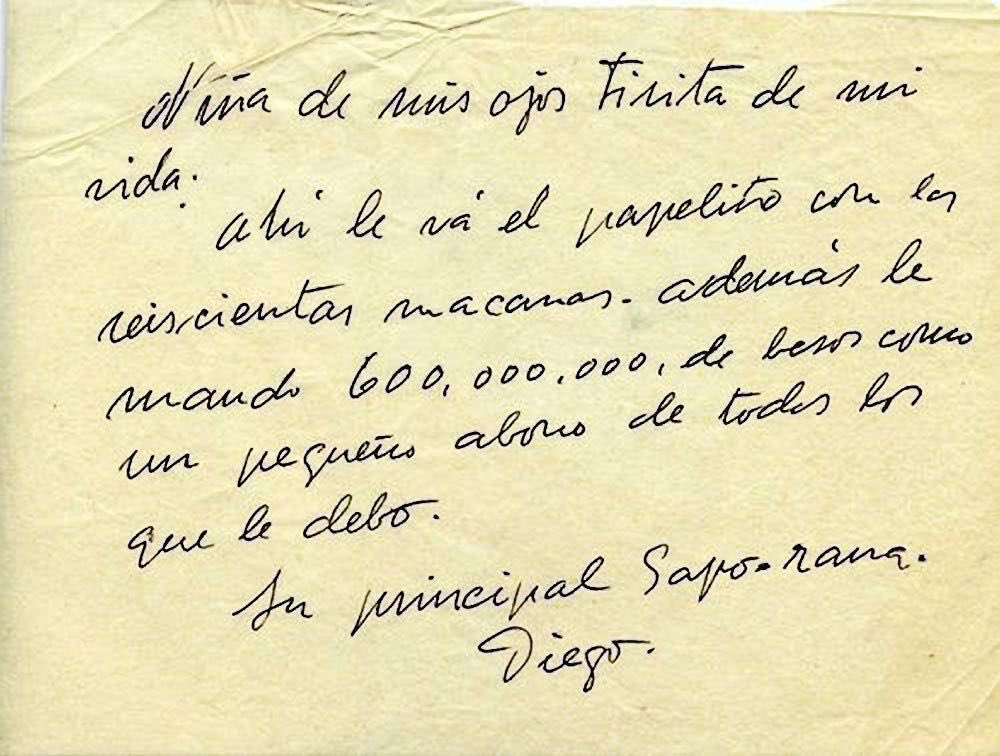 Niña de mis ojos Tisita de mi
vida:
ahí le vá el papelito con las
seiscientas macanas. además le
mando 600,000,000, de besos como
un pequeño abono de todos los
que le debo.
Su principal Sapo-rana.
Diego.